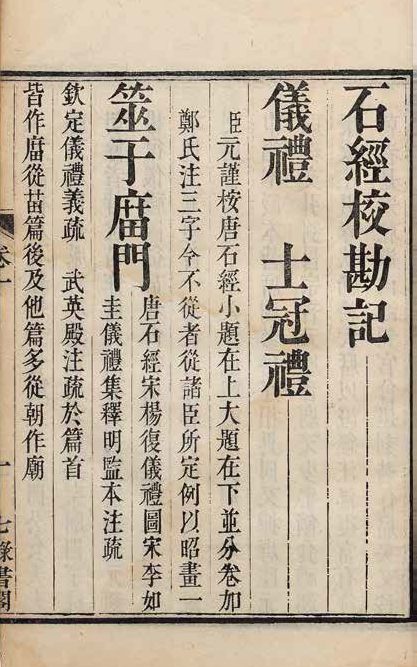 石經校勘記
儀禮　士冠禮
臣元謹桉唐石經小題在上大題在下並分卷加
鄭氏注三字今不從者從諸臣所定例以昭畫一
筮于庿門
唐石經宋楊復儀禮圖宋李如
圭儀禮集釋明監本注疏
欽定儀禮義疏　武英殿注疏於篇首
皆作庿從苗篇後及他篇多從朝作廟
卷一
一
七錄書閣